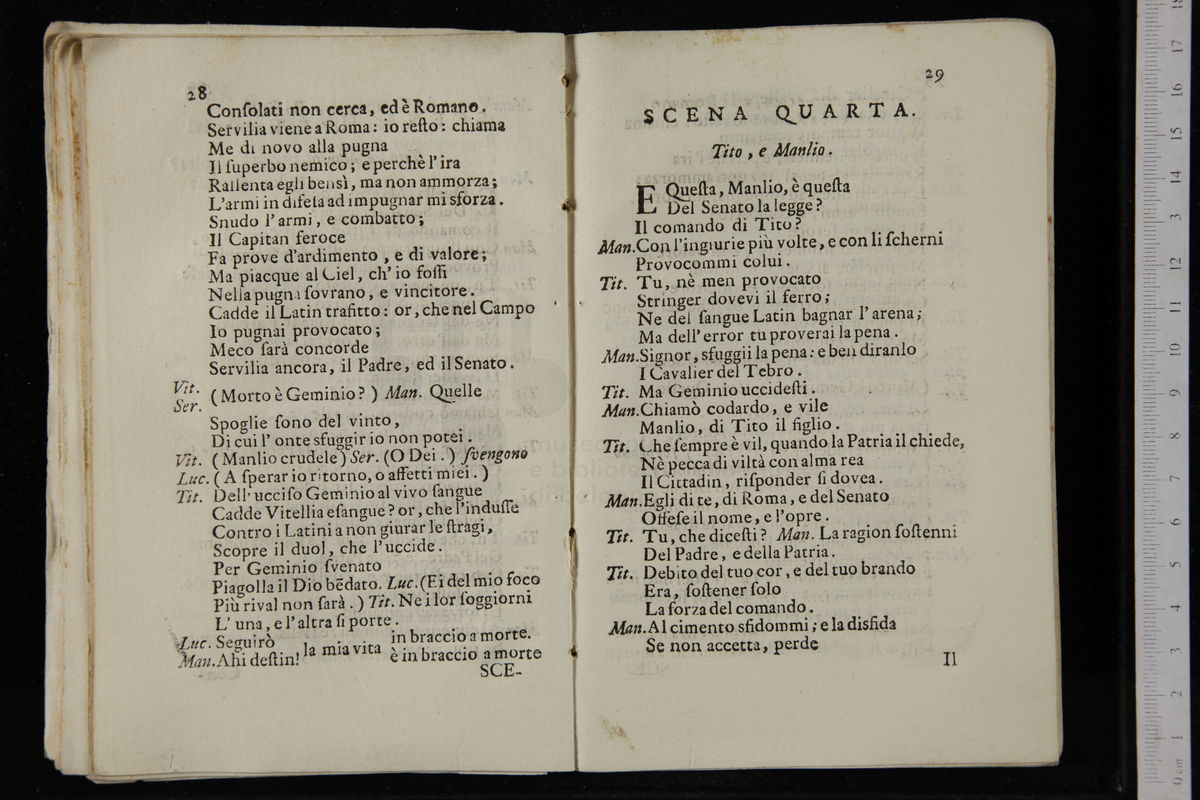 28
Conſolati non cerca, ed è Romano.
Servilia viene a Roma: io reſto: chiama
Me di novo alla pugna
Il ſuperbo nemico; e perchè l'ira
Rallenta egli bensì, ma non ammorza;
L'armi in difeſa ad impugnar mi sforza.
Snudo l'armi, e combatto;
Il Capitan feroce
Fa prove d'ardimento, e di valore;
Ma piacque al Ciel, ch'io foſſi
Nella pugna ſovrano, e vincitore.
Cadde il Latin trafitto: or, che nel Campo
Io pugnai provocato;
Meco ſarà concorde
Servilia ancora, il Padre, ed il Senato.
Vit.
Ser. (Morto è Geminio?) Man. Quelle
Spoglie ſono del vinto,
Di cui l'onte sfuggir io non potei.
Vit. (Manlio crudele) Ser. (O Dei.) ſvengono
Luc. (A ſperar io ritorno, o affetti miei.)
Tit. Dell'ucciſo Geminio al vivo ſangue
Cadde Vitellia eſangue? or, che l'induſſe
Contro i Latini a non giurar le ſtragi,
Scopre il duol, che l'uccide.
Per Geminio ſvenato
Piagolla il Dio bēdato. Luc. (Ei del mio foco
Più rival non ſarà.) Tit. Ne i lor ſoggiorni
L'una, e l'altra ſi porte.
Luc. Seguirò la mia vita in braccio a morte.
Man. Ahi deſtin! la mia vita è in braccio a morte
SCE-
29
SCENA QUARTA.
Tito, e Manlio.
E Queſta, Manlio, è queſta
Del Senato la legge?
Il comando di Tito?
Man. Con l'ingiurie più volte, e con li ſcherni
Provocommi colui.
Tit. Tu, nè men provocato
Stringer dovevi il ferro;
Ne del ſangue Latin bagnar l'arena;
Ma dell'error tu proverai la pena.
Man. Signor, sfuggii la pena: e ben diranlo
I Cavalier del Tebro.
Tit. Ma Geminio uccideſti.
Man. Chiamò codardo, e vile
Manlio, di Tito il figlio.
Tit. Che ſempre è vil, quando la Patria il chiede,
Nè pecca di viltà con alma rea
Il Cittadin, riſponder ſi dovea.
Man. Egli di te, di Roma, e del Senato
Offeſe il nome, e l'opre.
Tit. Tu, che diceſti? Man. La ragion ſoſtenni
Del Padre, e della Patria.
Tit. Debito del tuo cor, e del tuo brando
Era, ſoſtener ſolo
La forza del comando.
Man. Al cimento sfidommi; e la disfida
Se non accetta, perde
Il